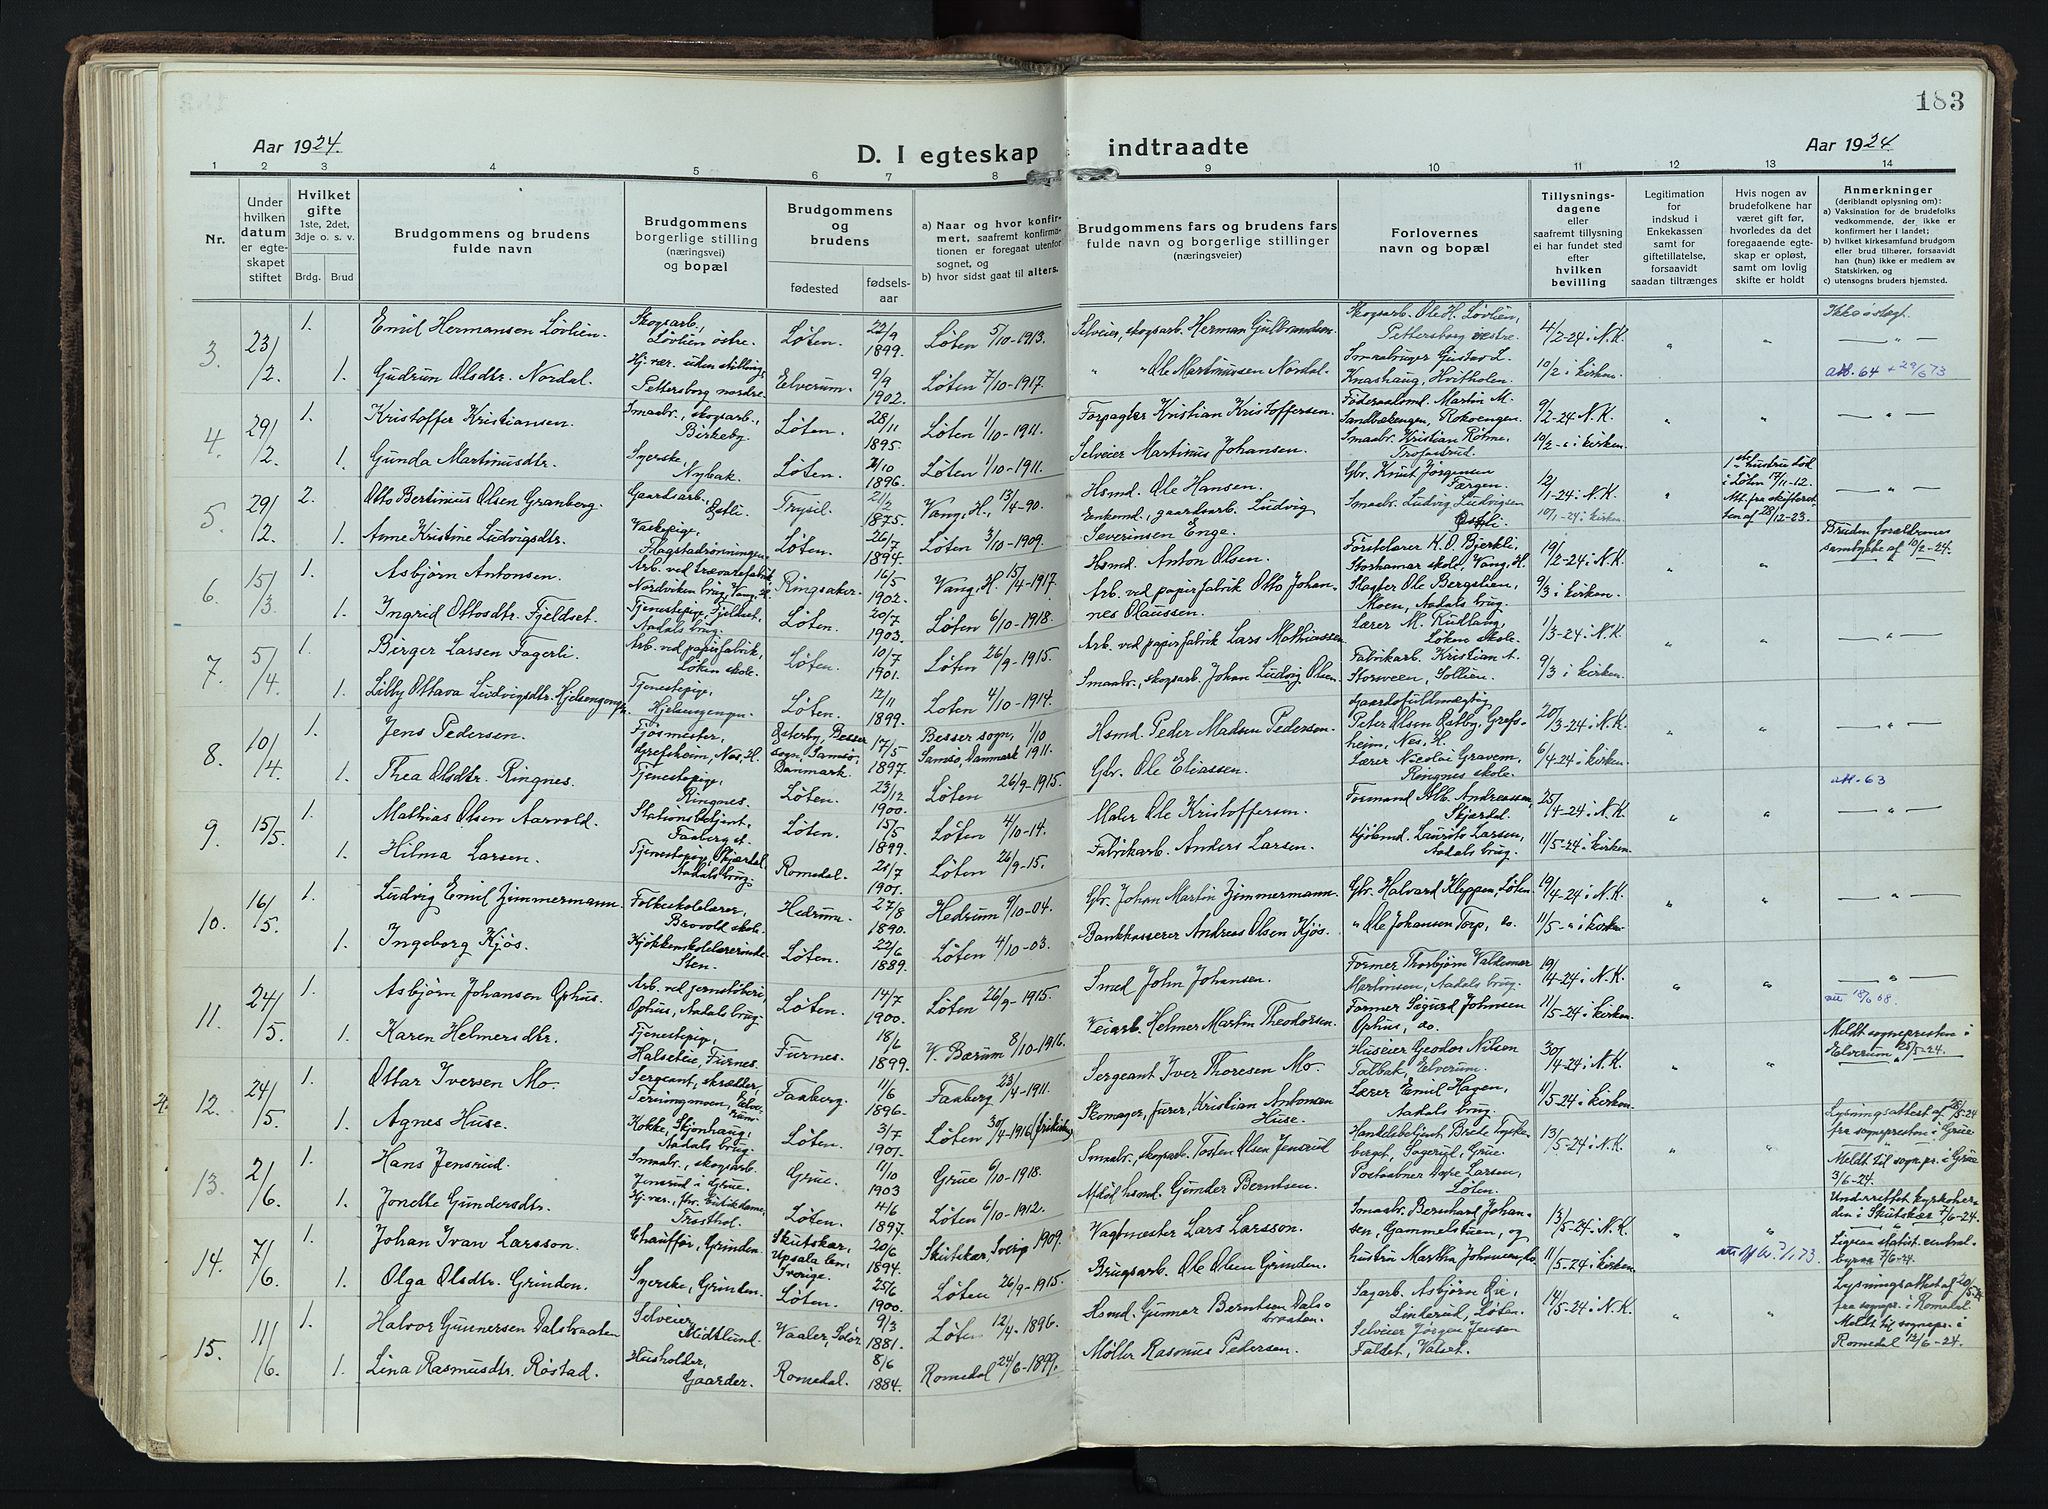 183
Aar 1924.
D. I egteskap indtraadte
Aar 1924
1 2 3 4 5 6 7 8 9 10 11 12 13 14
Nr.
Under hvilken datum er egteskapet stiftet
Hvilket gifte 1ste, 2det, 3dje o. s. v.
Brdg. Brud
Brudgommens og brudens fulde navn
Brudgommens borgerlige stilling (næringsvei) og bopæl
Brudgommens og brudens
fødested
fødsels-aar
a) Naar og hvor konfirmert, saafremt konfirmationen er foregaat utenfor sognet, og
b) hvor sidst gaat til alters.
Brudgommens fars og brudens fars fulde navn og borgerlige stillinger (næringsveier)
Forlovernes navn og bopæl
Tillysningsdagene eller saafremt tillysning ei har fundet sted efter hvilken bevilling
Legitimation for indskud i Enkekassen samt for giftetillatelse, forsaavidt saadan tiltrænges
Hvis nogen av brudefolkene har været gift før, hvorledes da det foregaaende egteskap er opløst, samt om lovlig skifte er holdt
Anmerkninger (deriblandt oplysning om):
a) Vaksination for de brudefolks vedkommende, der ikke er konfirmert her i landet;
b) hvilket kirkesamfund brudgom eller brud tilhører, forsaavidt han (hun) ikke er medlem av Statskirken, og
c) utensogns bruders hjemsted.
3. 23/2 1. Emil Hermansen Løvlien. Skogsarb., Løvlien østre. Løten. 22/9 1899. Løten 5/10-1913. Selveier, skogsarb. Herman Gulbrandsen. Skogsarb. Ole H. Løvlien, Pettersborg vestre. 4/2-24 i N.K.
1. Gudrun Olsdtr. Nordal. Hj.vær. uden stilling, Pettersborg nordre. Elverum. 9/9 1902. Løten 7/10-1917. " " Ole Martinussen Nordal. Smaabruger Gustav L. Knashaug, Hvitholen. 10/2 i kirken. att. 64 + 29/6 73
4. 29/2 1. Kristoffer Kristiansen. Smaabr., skogsarb., Birkeby. Løten. 28/11 1895. Løten 1/10-1911. Forpagter Kristian Kristoffersen. Føderaadsmd. Martin M. Sandbækengen, Rokvengen. 9/2-24 i N.K.
1. Gunda Martinusdtr. Syerske, Nybak. Løten. 7/10 1896. Løten 1/10-1911. Selveier Martinus Johansen. Smaabr. Kristian Røhme, 10/2-" i kirken.
5. 29/2 2. Otto Bertinius Olsen Granberg. Gaardsarb., Østli. Trysil. 21/2 1875. Vang, H., 13/4-90. Hsmd. Ole Hansen. Gbr. Knut Jørgensen Færgen. 12/1-24 i N.K. 1ste hustru død i Løten 17/11-12. Att. fra skifteretten af 28/12-23.
1. Anne Kristine Ludvigsdtr. Vaskepige, Flagstadrønningen. Løten. 26/7 1894. Løten 3/10-1909 Enkemd., gaardsarb. Ludvig Severinsen Enge. Smaabr. Ludvig Ludvigsen Østli. 10/1-24 i kirken.
6. 15/3 1. Asbjørn Antonsen. Arb. ved trævarefabrik Nordviken brug, Vang, H. Ringsaker. 16/5 1902. Vang, H. 15/4-1917. Hsmd. Anton Olsen. Førstelærer K. O. Bjerkli, Storhamar skole, Vang, H. 19/2-24 i N.K. Bruden forældrenes samtykke af 10/2-24.
1. Ingrid Ottosdtr. Fjeldset. Tjenestepige, Fjeldset, Aadals brug. Løten. 20/7 1903. Løten 6/10-1918. Arb. ved papirfabrik Otto Johannes Olaussen. Slagter Ole Bergslien, Moen, Aadals brug. 9/3 i kirken.
7. 5/4 1. Birger Larsen Fagerli. Arb. ved papirfabrik, Løken skole. Løten. 10/7 1901. Løten 26/9-1915. Arb. ved papirfabrik Lars Mathiassen. Lærer M. Rudlang, Løken skole. 1/3-24 i N.K.
1. Lilly Ottava Ludvigsdtr. Hjelsengengen. Tjenestepige, Hjelsengengen. Løten. 12/11 1899. Løten 4/10-1914. Smaabr., skogsarb. Johan Ludvig Olsen. Fabrikarb. Kristian A. Storsveen, Sollien. 9/3 i kirken.
8. 10/4 1. Jens Pedersen. Fjøsmester, Grefsheim, Nes, H. Østerby, Besser sogn, Samsø, Danmark. 17/5 1897. Besser sogn, Samsø, Danmark 1/10 1911. Hsmd. Peder Madsen Pedersen. Gaardsfuldmægtig Peter Olsen Østby, Grefsheim, Nes, H. 20/3-24 i N.K.
1. Thea Olsdtr. Ringnes. Tjenestepige, Ringnes. Løten. 23/12 1900. Løten 26/9-1915. Gbr. Ole Eliassen. Lærer Nicolai Gravem, Ringnes skole. 6/4-24 i kirken. att. 63
9. 15/5 1. Mathias Olsen Aarvold. Stationsbetjent, Faaberg st. Løten. 15/5 1899. Løten 4/10-14. Maler Ole Kristoffersen. Formand Alb. Andreassen, Skjærdal. 25/4-24 i N.K.
1. Hilma Larsen. Tjenestepige, Skjærdal, Aadals brug. Romedal. 20/7 1901. Løten 26/9-15. Fabrikarb. Anders Larsen. Kjøbmd. Laurits Larsen, Aadals brug. 11/5-24 i kirken.
10. 16/5 1. Ludvig Emil Zimmermann. Folkeskolelærer, Brovold skole. Hedrum. 27/8 1890. Hedrum 9/10-04. Gbr. Johan Martin Zimmermann. Gbr. Halvard Kleppen, Løten. 19/4-24 i N.K.
1. Ingeborg Kjøs. Kjøkkenskolelærerinde Sten. Løten. 22/6 1889. Løten 4/10-03. Bankkasserer Andreas Olsen Kjøs. " Ole Johansen Torp, do. 11/5-" i kirken.
11. 24/5 1. Asbjørn Johansen Ophus. Arb. ved jernstøberi, Ophus, Aadals brug. Løten. 14/7 1900. Løten 26/9-1915. Smed John Johansen. Former Thorbjørn Valdemar Martinsen, Aadals brug. 19/4-24 i N.K.
1. Karen Helmersdtr. Tjenestepige, Halseteie, Furnes. Furnes. 18/6 1899. V. Bærum 8/10-1916. Veiarb. Helmer Martin Theodorsen. Former Sigurd Johnsen Ophus, do. 11/5-24 i kirken. att. 18/6 68.
12. 24/5 1. Ottar Iversen Mo. Sergeant, skrædder, Terningmoen, Elverum. Faaberg. 11/6 1896. Faaberg 23/4-1911. Sergeant Iver Thoresen Mo. Huseier Geodor Nilsen Talbak, Elverum. 30/4-24 i N.K. Meldt sognepresten i Elverum 25/5-24.
1. Agnes Huse. Kokke, Skjønhaug, Aadals brug. Løten. 3/7 1901. Løten 30/4-1916 (frikirken) Skomager, furer, Kristian Antonsen Huse. Lærer Emil Hagen, Aadals brug. 11/5-24 i kirken.
13. 2/6 1. Hans Jensrud. Smaabr., skogsarb. Jensrud i Grue. Grue. 11/10 1903 Grue 6/10-1918. Smaabr., skogsarb. Torsten Olsen Jensrud Handelsbetjent Brede Tyskeberget, Grue. 13/5-24 i N.K. Lysningsattest af 28/5-24 fra sognepresten i Grue. Meldt til sognepr. i Grue 3/6-24.
1. Jonette Gundersdtr. Hj. vær., Trosthol. Løten. 4/6 1897. Løten 6/10-1912. Afdød hsmd. Gunder Berntsen. Postaabner Larsen, Løten.
14. 7/6 1. Johan Ivan Larsson. Chauffør, Grinden. Skutskær, Upsala len, Sverige. 20/6 1894. Skutskær, Sverig 1909. Vagtmester Lars Larsson. Smaabr. Bernhard Johansen, Gammelstuen, og 13/5-24 i N.K. Underrettet kyrkoherden i Skutskær 7/6-24. Ligesaa statist. centralbyraa 7/6-24.
1. Olga Olsdtr. Grinden. Syerske, Grinden. Løten. 25/6 1900. Løten 26/9-1915. Brugsarb. Ole Olsen Grinden. hustru Martha Johansen, do. 11/5-24 i kirken.
15. 11/6 1. Halvor Gunnersen Dalsbraaten Selveier, Midtlund. Vaaler, Solør. 9/3 1881. Løten 12/4-1896. Hsmd. Gunnar Berntsen Dalsbraaten. Sagarb. Asbjørn Lie, Linterud, Løten. 14/5-24 i N.K. Lysningsattest af 20/5-24 fra sognepr. i Romedal. Meldt til sognepr. i Romedal 12/6-24.
1. Lina Rasmusdtr. Røstad. Husholder, Gaarder. Romedal. 8/6 1884. Romedal 24/6-1899. Møller Rasmus Pedersen. Selveier Jørgen Jensen Faldet, Valset.